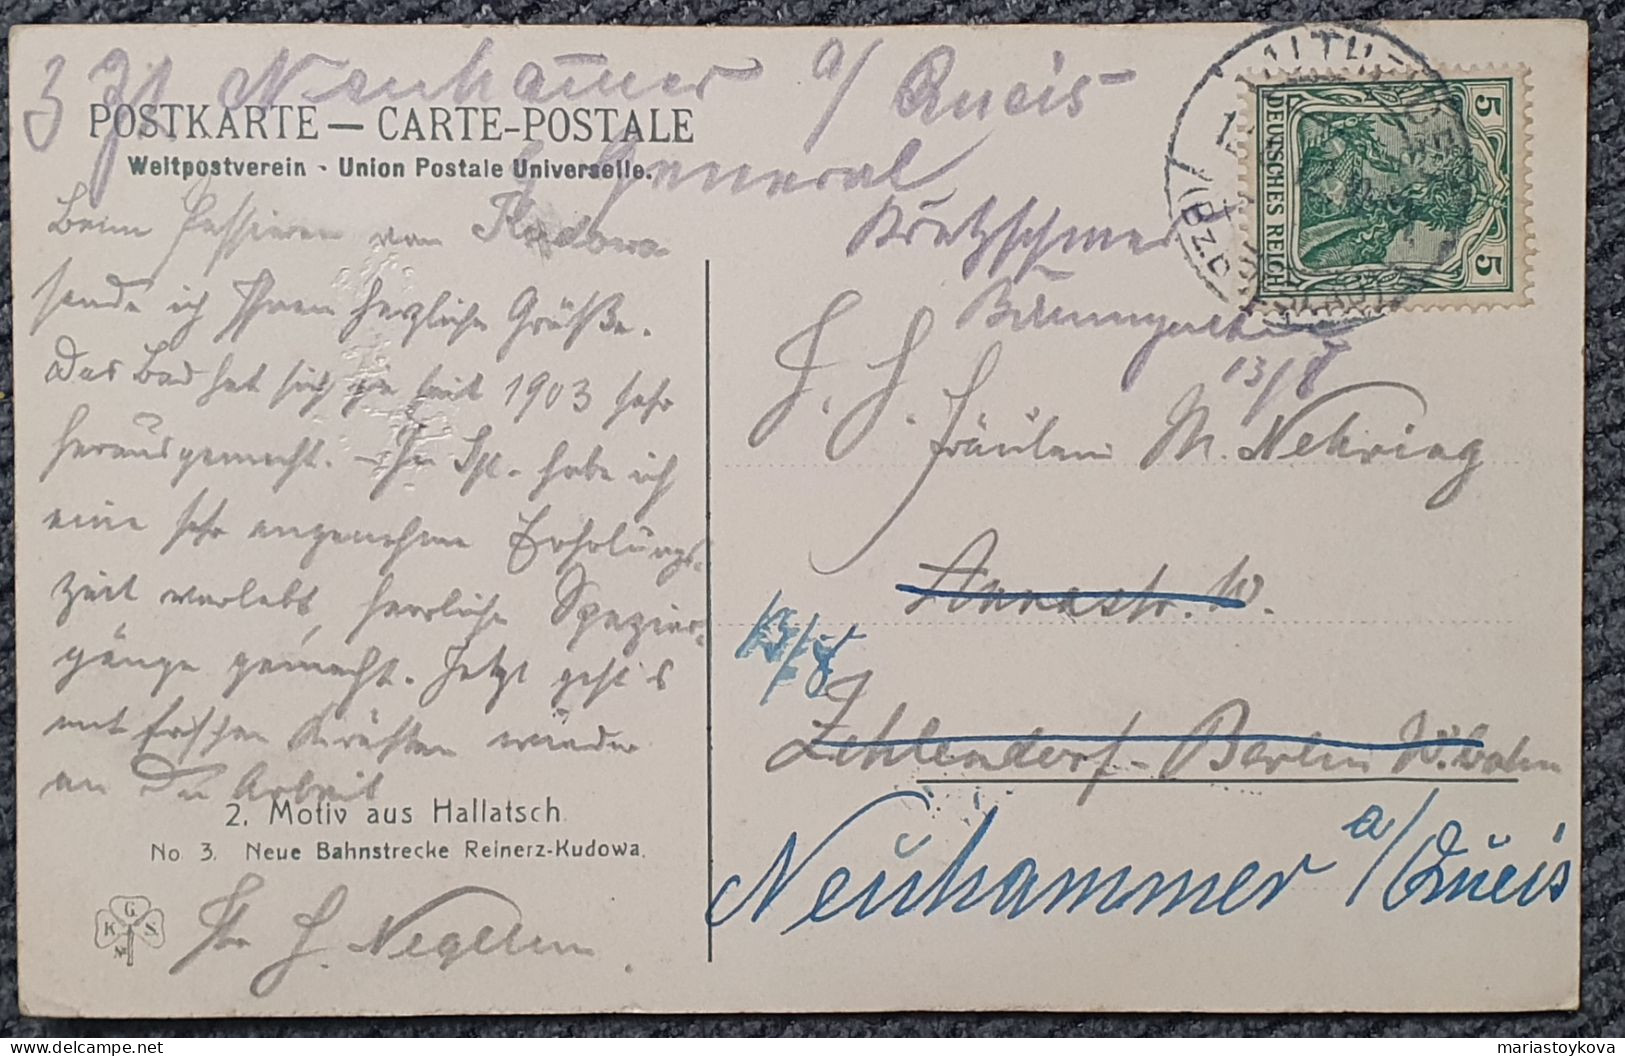 z. Zt. Neuhammer a/ Queis
POSTKARTE — CARTE-POSTALE
Weltpostverein - Union Postale Universelle.
General
Kretzschmer
Baumgarth
13/8
Beim Passieren von Kudowa
sende ich Ihnen herzliche Grüße.
Das Bad hat sich seit 1903 sehr
herausgemacht. – In habe ich
eine sehr angenehme Erholungs-
zeit verlebt, herrliche Spazier-
gänge gemacht. Jetzt geht's
mit frischen Kräften wieder
an die Arbeit
2. Motiv aus Hallatsch.
No. 3. Neue Bahnstrecke Reinerz-Kudowa.
K G S
M
H. Negelein.
DEUTSCHES REICH
5 5
Fräulein M. Nehring
Annastr. W.
13/8
Zehlendorf-Berlin W.bahn
Neuhammer a/Queis
mariastoykova